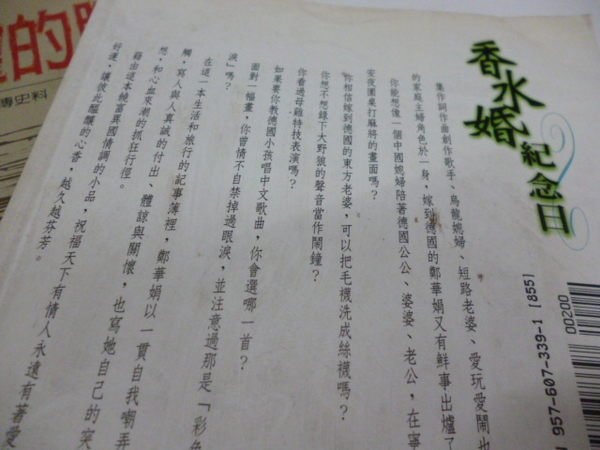 香水婚紀念日
集作詞作曲創作歌手、烏龍媳婦、短路老婆、愛玩愛鬧也
的家庭主婦角色於一身，嫁到德國的鄭華娟又有鮮事出爐了
你能想像一個中國媳婦陪著德國公公、婆婆、老公，在寧
安夜圍桌打麻將的畫面嗎？
你相信嫁到德國的東方老婆，可以把毛襪洗成絲襪嗎？
你想不想錄下大野狼的聲音當作鬧鐘？
你看過母雞特技表演嗎？
如果要你教德國小孩唱中文歌曲，你會選哪一首？
面對一幅畫，你曾情不自禁掉過眼淚，並注意過那是「彩色
淚」嗎？
在這一本生活和旅行的記事簿裡，鄭華娟以一貫自我嘲弄
觸，寫人與人真誠的付出、體諒與關懷，也寫她自己的突
想，和心血來潮的抓狂行徑。
藉由這本饒富異國情調的小品，祝福天下有情人永遠有著愛
好運，讓彼此醞釀的心香，越久越芬芳。
957-607-339-1 [855]
00200
的
史料